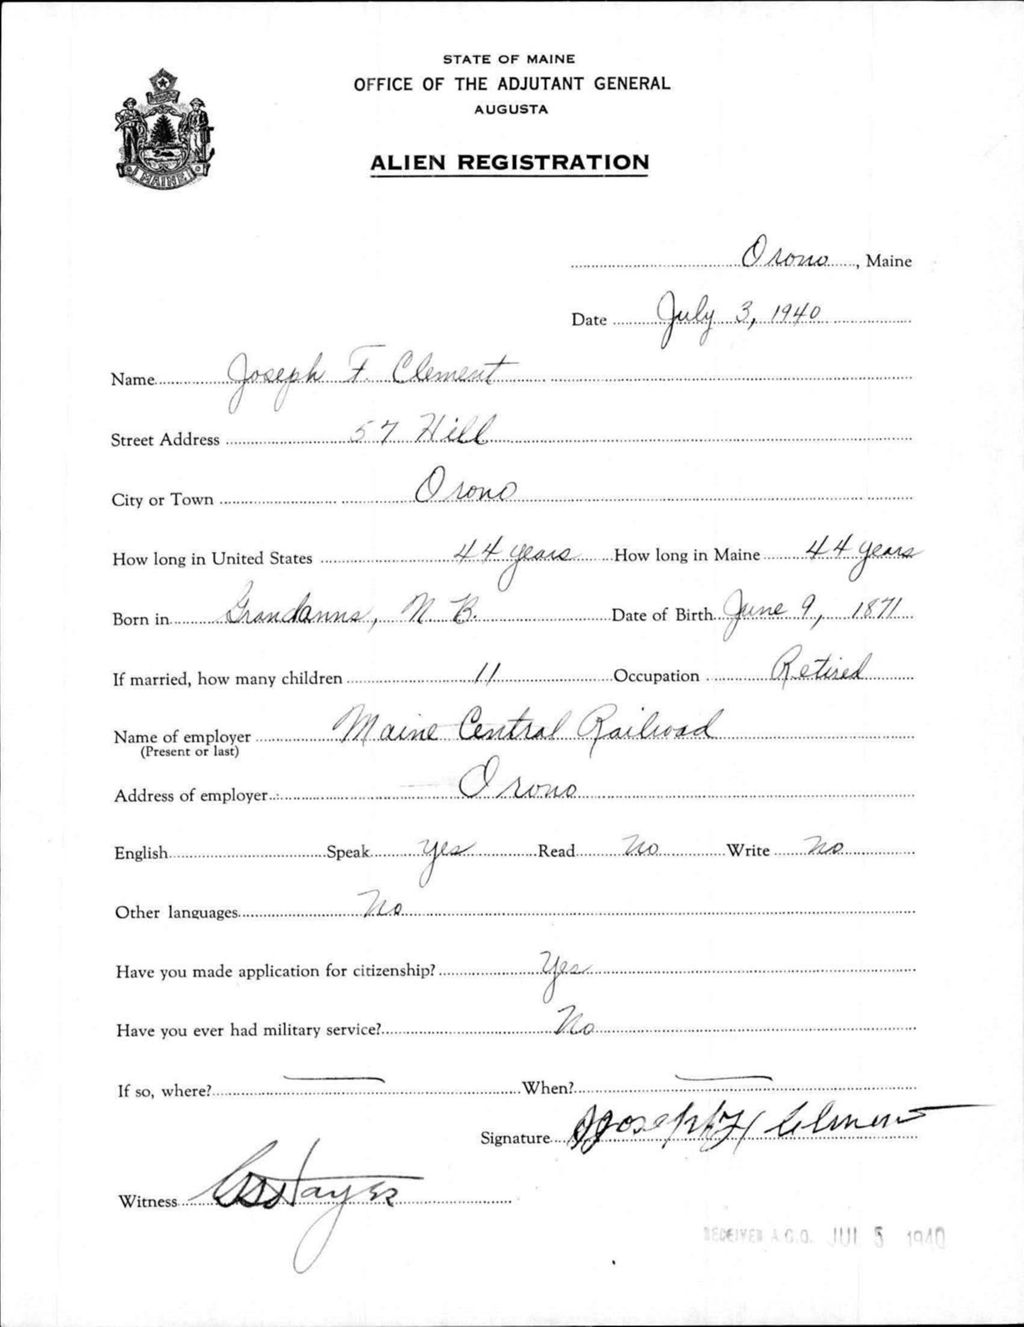 STATE OF MAINE
OFFICE OF THE ADJUTANT GENERAL
AUGUSTA
ALIEN REGISTRATION
MAINE
Orono, Maine
Date July 3, 1940
Name Joseph F. Clement
Street Address 57 Hill
City or Town Orono
How long in United States 44 years How long in Maine 44 years
Born in Grandanns, N. B. Date of Birth June 9, 1871
If married, how many children 11 Occupation Retired
Name of employer Maine Central Railroad
(Present or last)
Address of employer Orono
English Speak Yes Read No Write No
Other languages No
Have you made application for citizenship? Yes
Have you ever had military service? No
If so, where? — When? —
Signature Joseph F Clement
Witness Hayes
RECEIVED A.G.O. JUL 5 1940